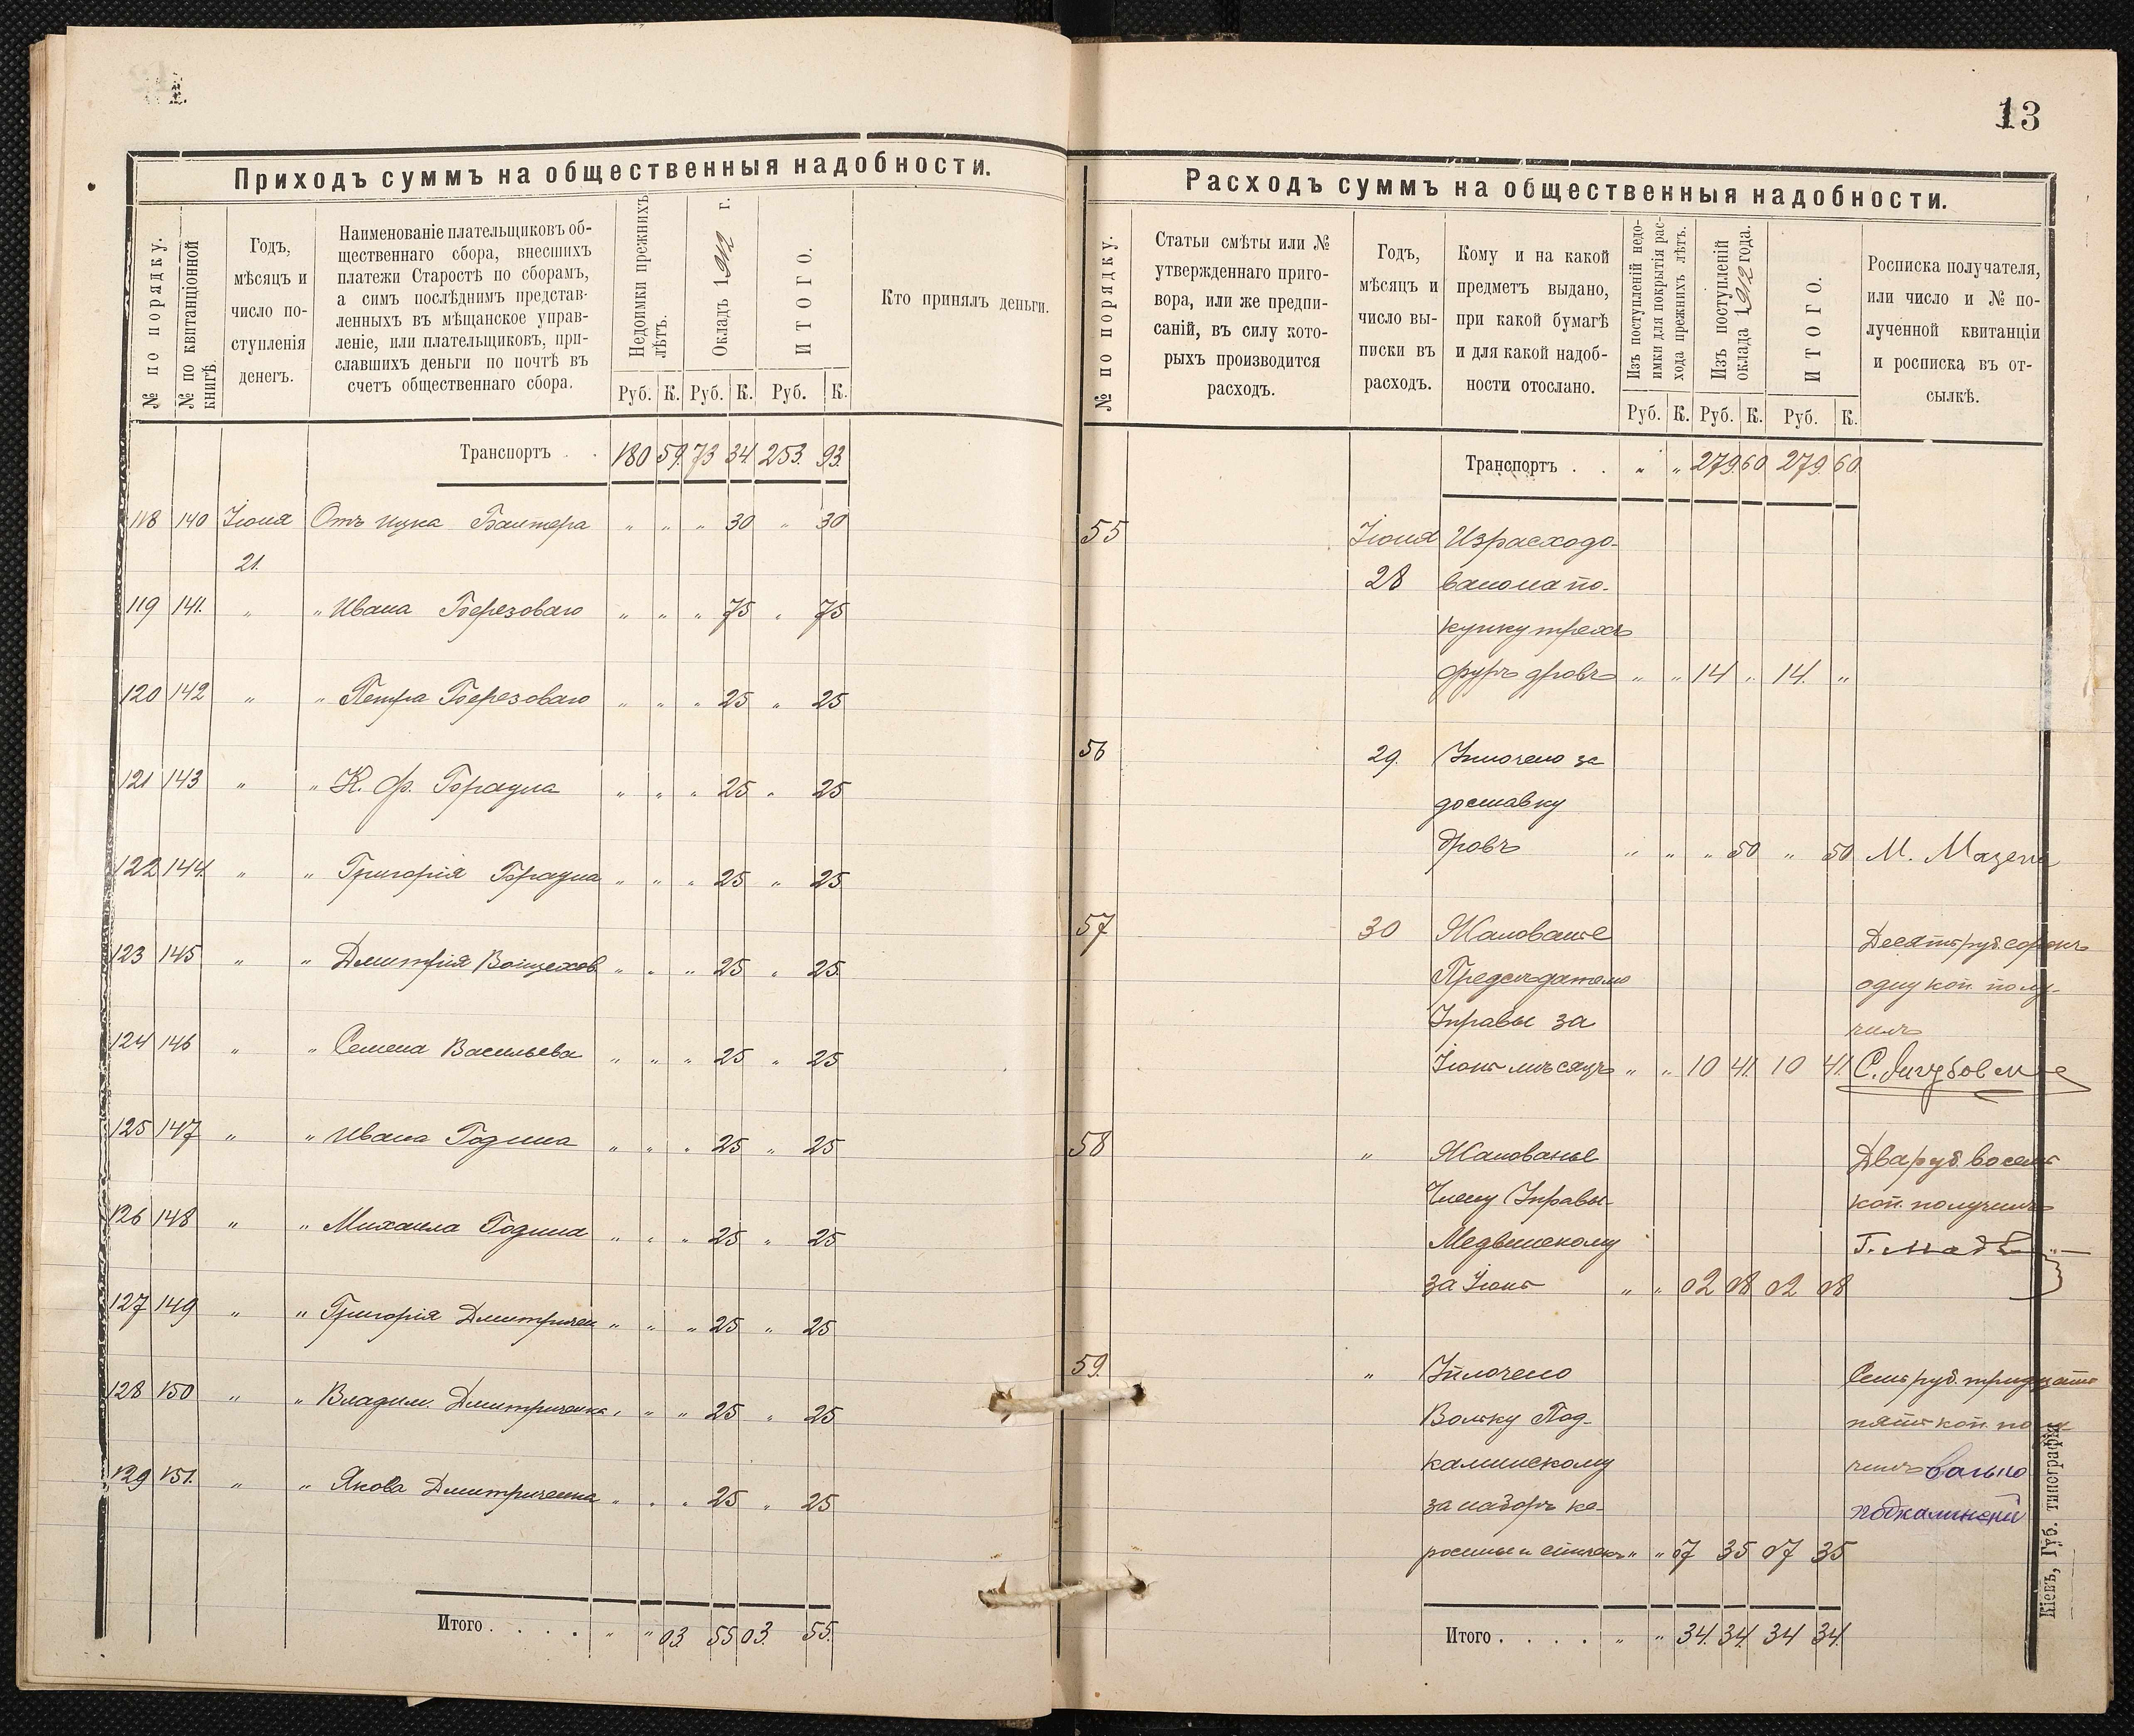 13
Приходъ суммъ на общественныя надобности.
№ по порядку.
№ по квитанціонной книгѣ.
Годъ,
мѣсяцъ и
число по-
ступленія
денегъ.
Наименованіе плательщиковъ об-
щественнаго сбора, внесшихъ
платежи Старостѣ по сборамъ,
а симъ послѣднимъ представ-
ленныхъ въ мѣщанское управ-
леніе, или плательщиковъ, при-
славшихъ деньги по почтѣ въ
счетъ общественнаго сбора.
Недоимки прежнихъ
лѣтъ.
Окладъ 1912 г.
ИТОГО.
Кто принялъ деньги.
Руб. К. Руб. К. Руб. К.
Транспортъ . . 180 59. 73 34. 253. 93.
118 140 Іюня Отъ Ицка Бантера " " " 30 " 30
21.
119 141. " " Ивана Березоваго " " " 75 " 75
120 142 " " Петра Березоваго " " " 25 " 25
121 143 " " К. Ф. Брауна " " " 25 " 25
122 144. " " Григорія Брауна " " " 25 " 25
123 145 " " Дмитрія Воицехов " " " 25 " 25
124 146 " " Семена Васильева " " " 25 " 25
125 147 " " Ивана Година " " " 25 " 25
126 148 " " Михаила Година " " " 25 " 25
127 149 " " Григорія Дмитричен " " " 25 " 25
128 150 " " Владим. Дмитриченка " " " 25 " 25
129 151. " " Якова Дмитриченка " " " 25 " 25
Итого . . . . " " 03 55 03. 55.
Расходъ суммъ на общественныя надобности.
№ по порядку.
Статьи смѣты или №
утвержденнаго приго-
вора, или же предпи-
саній, въ силу кото-
рыхъ производится
расходъ.
Годъ,
мѣсяцъ и
число вы-
писки въ
расходъ.
Кому и на какой
предметъ выдано,
при какой бумагѣ
и для какой надоб-
ности отослано.
Изъ поступленій недо-
имки для покрытія рас-
хода прежнихъ лѣтъ.
Изъ поступленій
оклада 1912 года.
ИТОГО.
Росписка получателя,
или число и № по-
лученной квитанціи
и росписка въ от-
сылкѣ.
Руб. К. Руб. К. Руб. К.
Транспортъ . . " " 279. 60 279. 60
55 Іюня Израсходо-
28 вано на по-
купку трехъ
фуръ дровъ " " 14 " 14. "
56 29. Уплочено за
доставку
дровъ " " " 50 " 50 М. Мазепа
57 30 Жалованье Десять руб. сорокъ
Предсѣдателю одну коп. полу-
Управы за чилъ
Іюнь мѣсяцъ " " 10 41. 10 41.
58 " Жалованье Два руб. восемь
Члену Управы коп. получилъ
Медвинскому
за Іюнь " " 02 08 02 08
59. " Уплочено Семь руб. тридцать
Волку Под- пять коп. полу
каминскому чилъ
за наборъ ке-
росины и спичекъ " " 07 35 07 35
Итого . . . . " " 34. 34. 34 34.
Кіевъ, Губ. типографія